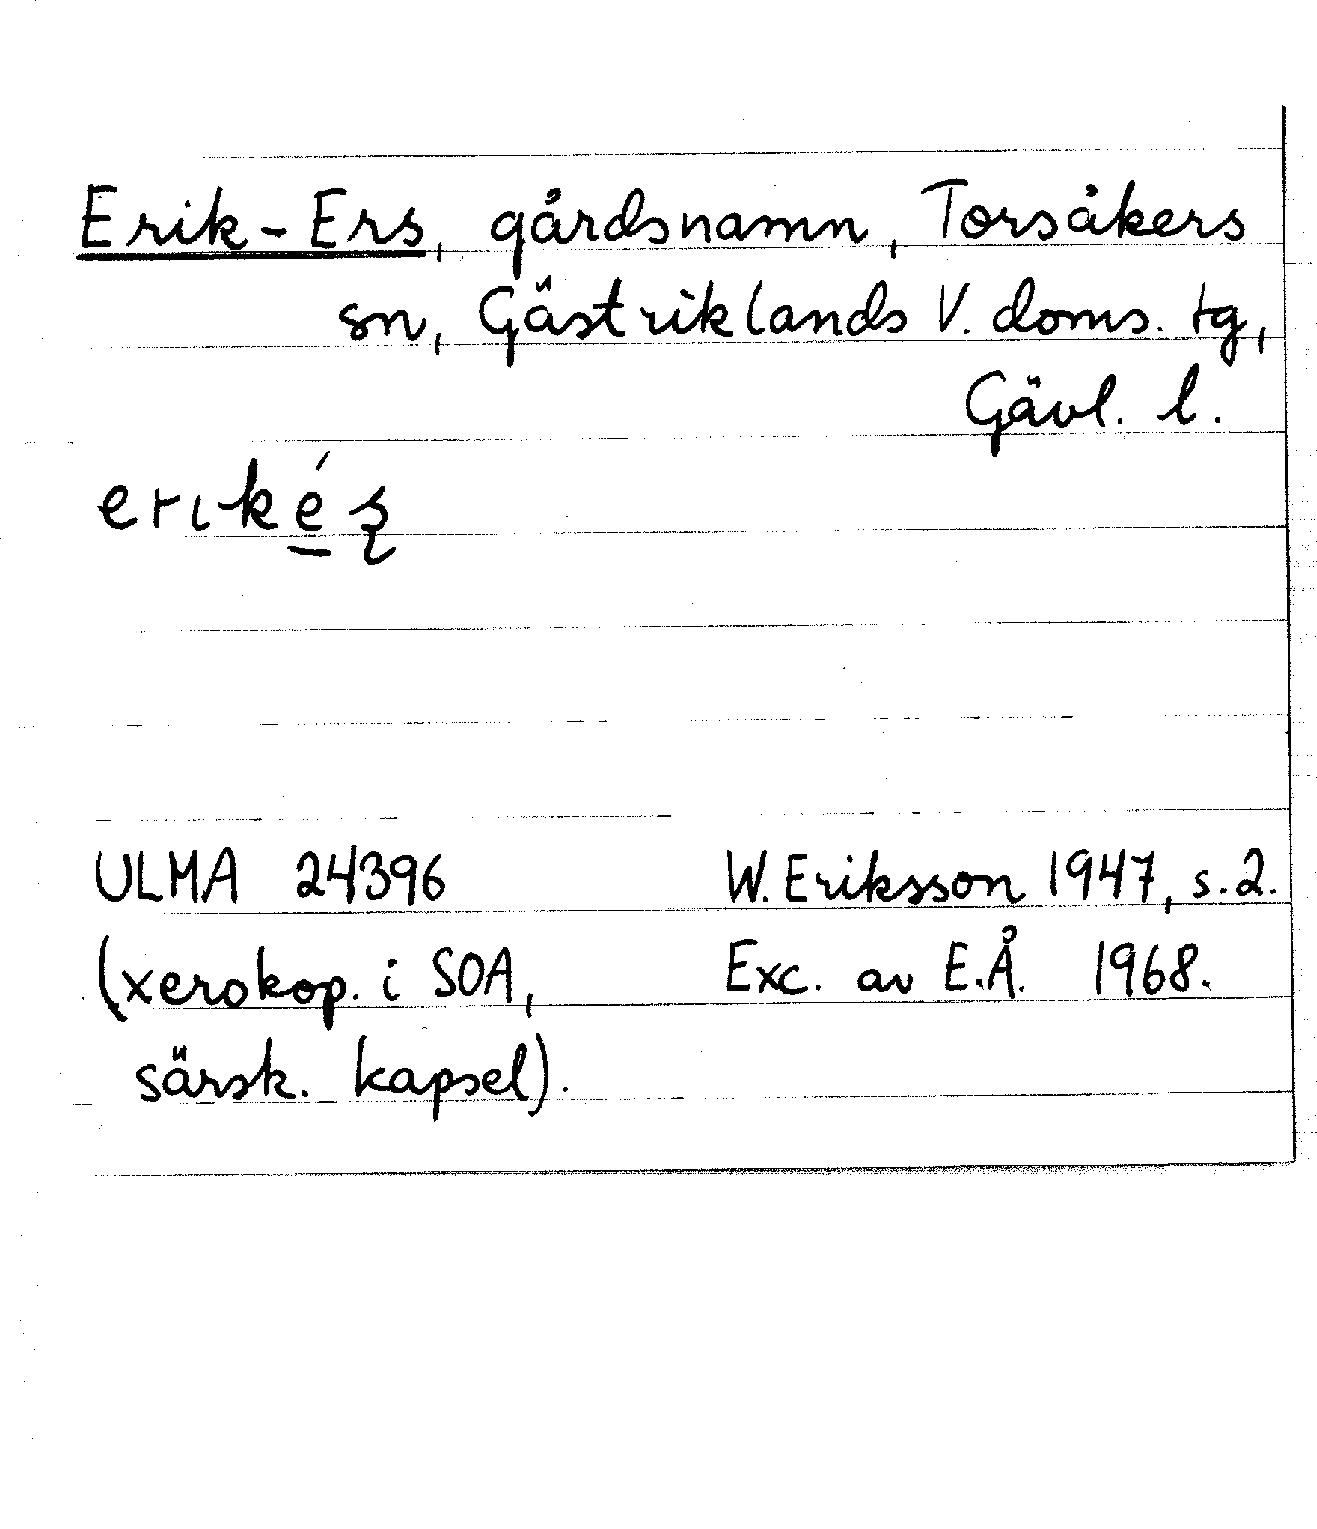 Erik-Ers, gårdsnamn, Torsåkers
sn, Gästriklands V. doms. tg,
Gävl. l.
erıké̱ʂ
ULMA 24396 W. Eriksson 1947, s. 2.
(xerokop. i SOA, Exc. av E.Å. 1968.
särsk. kapsel).